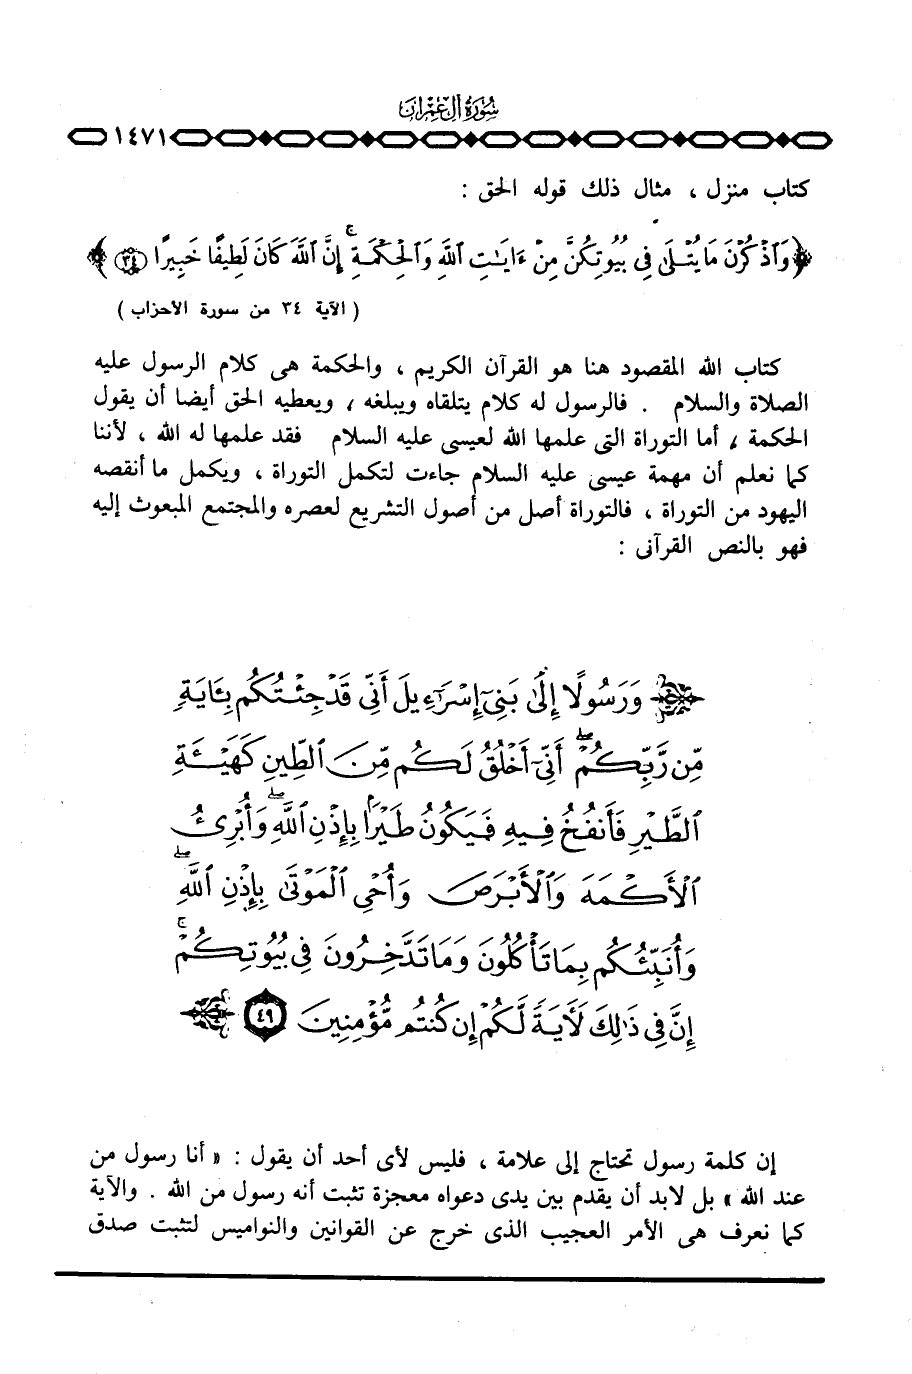 سُورَةُ آلِ عِمْرَانَ
١٤٧١
كتاب منزل ، مثال ذلك قوله الحق :
﴿ وَٱذْكُرْنَ مَا يُتْلَىٰ فِى بُيُوتِكُنَّ مِنْ ءَايَٰتِ ٱللَّهِ وَٱلْحِكْمَةِ ۚ إِنَّ ٱللَّهَ كَانَ لَطِيفًا خَبِيرًا ٣٤ ﴾
( الآية ٣٤ من سورة الأحزاب )
كتاب الله المقصود هنا هو القرآن الكريم ، والحكمة هى كلام الرسول عليه
الصلاة والسلام . فالرسول له كلام يتلقاه ويبلغه ، ويعطيه الحق أيضا أن يقول
الحكمة ، أما التوراة التى علمها الله لعيسى عليه السلام فقد علمها له الله ، لأننا
كما نعلم أن مهمة عيسى عليه السلام جاءت لتكمل التوراة ، ويكمل ما أنقصه
اليهود من التوراة ، فالتوراة أصل من أصول التشريع لعصره والمجتمع المبعوث إليه
فهو بالنص القرآنى :
وَرَسُولًا إِلَىٰ بَنِىٓ إِسْرَٰٓءِيلَ أَنِّى قَدْ جِئْتُكُم بِـَٔايَةٍ
مِّن رَّبِّكُمْ ۖ أَنِّىٓ أَخْلُقُ لَكُم مِّنَ ٱلطِّينِ كَهَيْـَٔةِ
ٱلطَّيْرِ فَأَنفُخُ فِيهِ فَيَكُونُ طَيْرًۢا بِإِذْنِ ٱللَّهِ ۖ وَأُبْرِئُ
ٱلْأَكْمَهَ وَٱلْأَبْرَصَ وَأُحْىِ ٱلْمَوْتَىٰ بِإِذْنِ ٱللَّهِ ۖ
وَأُنَبِّئُكُم بِمَا تَأْكُلُونَ وَمَا تَدَّخِرُونَ فِى بُيُوتِكُمْ ۚ
إِنَّ فِى ذَٰلِكَ لَـَٔايَةً لَّكُمْ إِن كُنتُم مُّؤْمِنِينَ ٤٩
إن كلمة رسول تحتاج إلى علامة ، فليس لأى أحد أن يقول : « أنا رسول من
عند الله » بل لابد أن يقدم بين يدى دعواه معجزة تثبت أنه رسول من الله . والآية
كما نعرف هى الأمر العجيب الذى خرج عن القوانين والنواميس لتثبت صدق